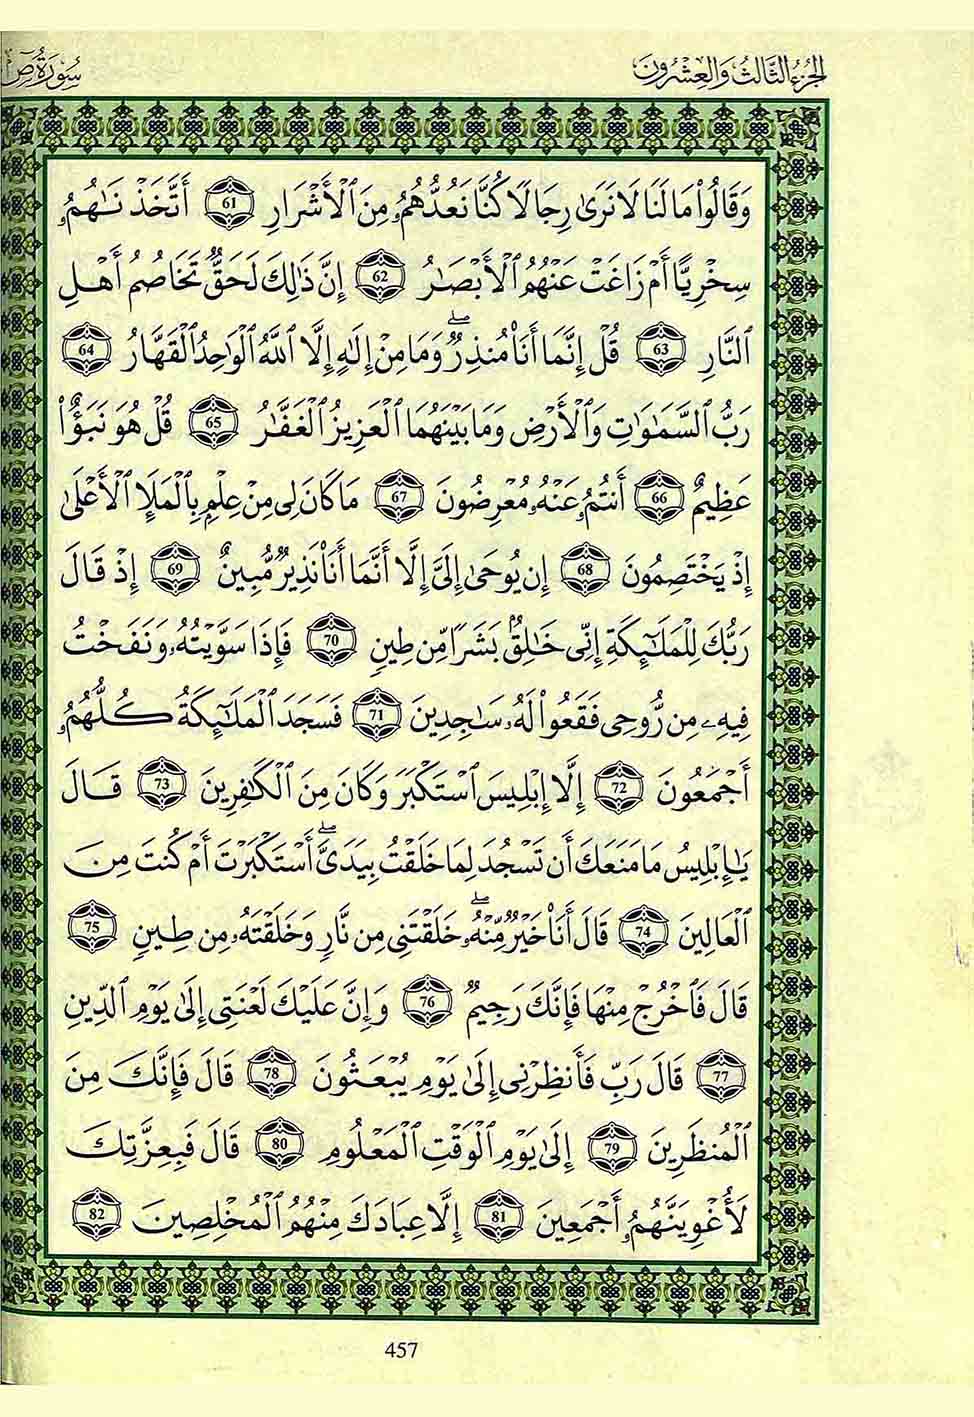 الجزء الثالث والعشرون
سورة ص
وَقَالُوا۟ مَا لَنَا لَا نَرَىٰ رِجَالًا كُنَّا نَعُدُّهُمُۥ مِنَ ٱلْأَشْرَارِ 61 أَتَّخَذْنَٰهُمُۥ
سِخْرِيًّا أَمْ زَاغَتْ عَنْهُمُ ٱلْأَبْصَٰرُ 62 إِنَّ ذَٰلِكَ لَحَقٌّ تَخَاصُمُ أَهْلِ
ٱلنَّارِ 63 قُلْ إِنَّمَا أَنَا۠ مُنذِرٌ ۖ وَمَا مِنْ إِلَٰهٍ إِلَّا ٱللَّهُ ٱلْوَٰحِدُ ٱلْقَهَّارُ 64
رَبُّ ٱلسَّمَٰوَٰتِ وَٱلْأَرْضِ وَمَا بَيْنَهُمَا ٱلْعَزِيزُ ٱلْغَفَّٰرُ 65 قُلْ هُوَ نَبَؤٌا۟
عَظِيمٌ 66 أَنتُمُۥ عَنْهُۥ مُعْرِضُونَ 67 مَا كَانَ لِى مِنْ عِلْمٍۭ بِٱلْمَلَإِ ٱلْأَعْلَىٰ
إِذْ يَخْتَصِمُونَ 68 إِن يُوحَىٰ إِلَىَّ إِلَّا أَنَّمَا أَنَا۠ نَذِيرٌ مُّبِينٌ 69 إِذْ قَالَ
رَبُّكَ لِلْمَلَٰٓئِكَةِ إِنِّى خَٰلِقٌۢ بَشَرًا مِّن طِينٍ 70 فَإِذَا سَوَّيْتُهُۥ وَنَفَخْتُ
فِيهِۦ مِن رُّوحِى فَقَعُوا۟ لَهُۥ سَٰجِدِينَ 71 فَسَجَدَ ٱلْمَلَٰٓئِكَةُ كُلُّهُمُۥ
أَجْمَعُونَ 72 إِلَّا إِبْلِيسَ ٱسْتَكْبَرَ وَكَانَ مِنَ ٱلْكَٰفِرِينَ 73 قَالَ
يَٰإِبْلِيسُ مَا مَنَعَكَ أَن تَسْجُدَ لِمَا خَلَقْتُ بِيَدَىَّ ۖ أَسْتَكْبَرْتَ أَمْ كُنتَ مِنَ
ٱلْعَالِينَ 74 قَالَ أَنَا۠ خَيْرٌ مِّنْهُۥ ۖ خَلَقْتَنِى مِن نَّارٍ وَخَلَقْتَهُۥ مِن طِينٍ 75
قَالَ فَٱخْرُجْ مِنْهَا فَإِنَّكَ رَجِيمٌ 76 وَإِنَّ عَلَيْكَ لَعْنَتِى إِلَىٰ يَوْمِ ٱلدِّينِ
77 قَالَ رَبِّ فَأَنظِرْنِى إِلَىٰ يَوْمِ يُبْعَثُونَ 78 قَالَ فَإِنَّكَ مِنَ
ٱلْمُنظَرِينَ 79 إِلَىٰ يَوْمِ ٱلْوَقْتِ ٱلْمَعْلُومِ 80 قَالَ فَبِعِزَّتِكَ
لَأُغْوِيَنَّهُمُۥ أَجْمَعِينَ 81 إِلَّا عِبَادَكَ مِنْهُمُ ٱلْمُخْلِصِينَ 82
457